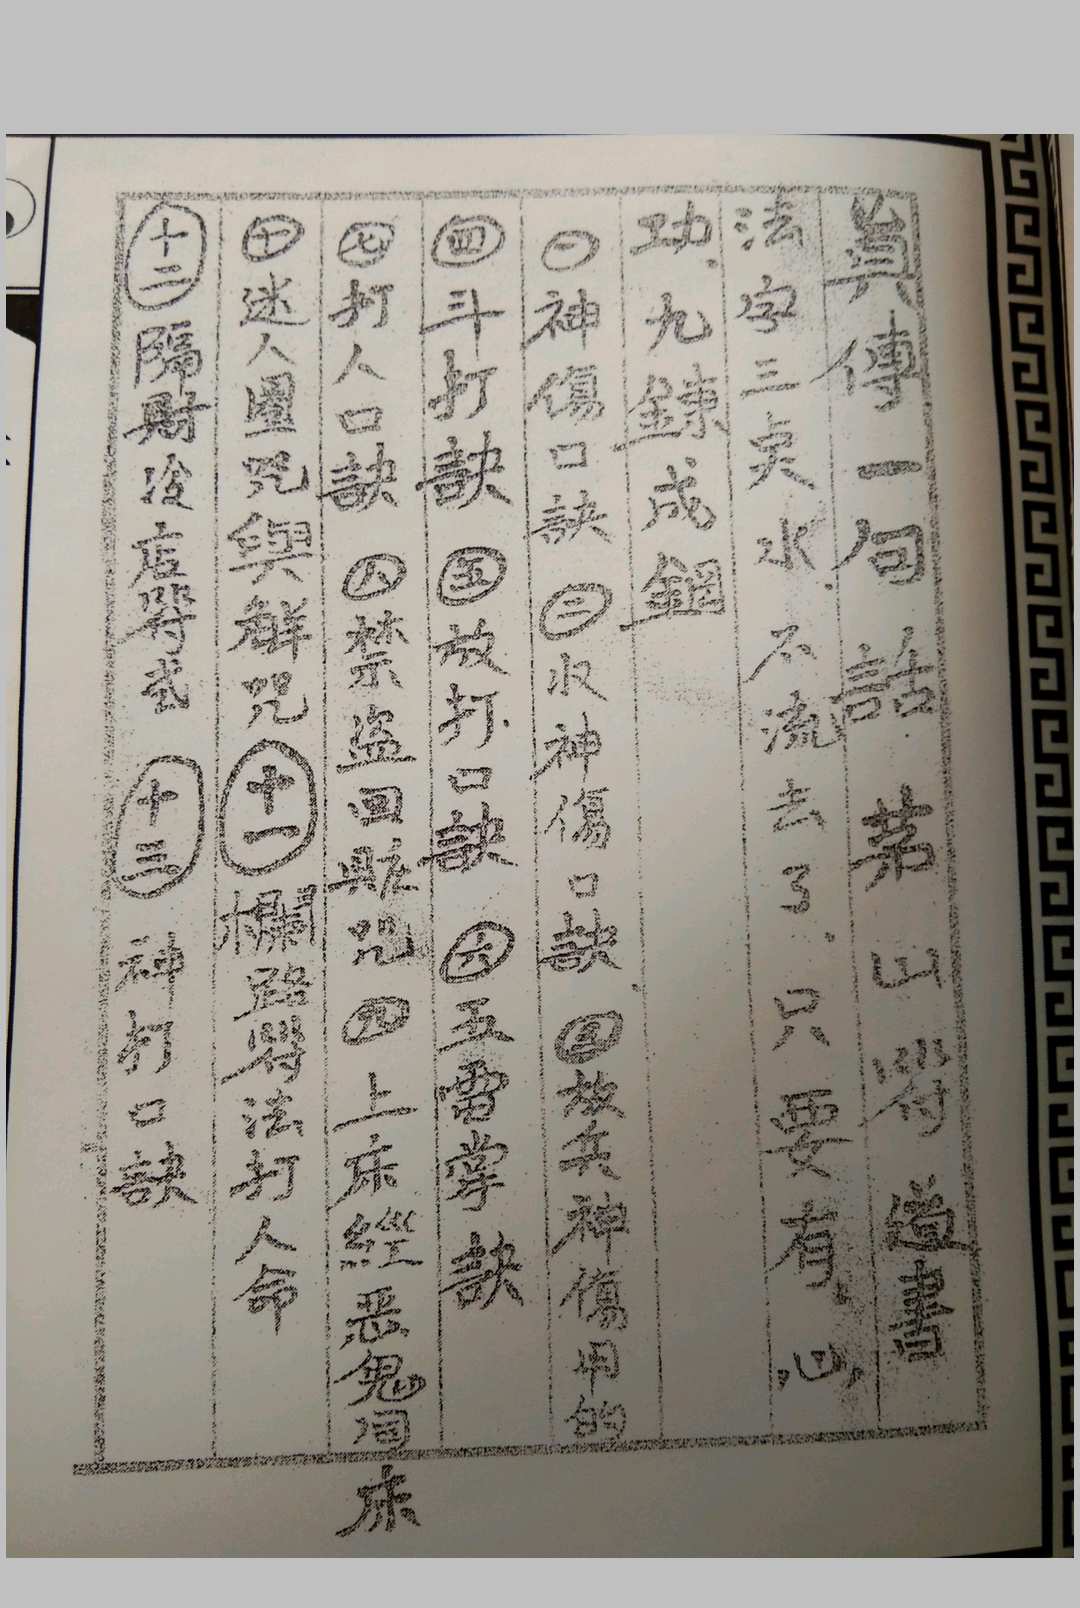 真傳一句話 茅山符 道書
法字三点水.不流去了.只要有心
功.九鍊成鋼
㊀神傷口訣 ㊂収神傷口訣 放兵神傷用的
㊃斗打訣 ㊄放打口訣 ㊅五雷掌訣
㊆打人口訣 ㊇禁盜回賍咒 上床經恶鬼同床
㊉迷人圍咒與解咒 十一欄路符法打人命
十二隔財冷店符式 十三神打口訣